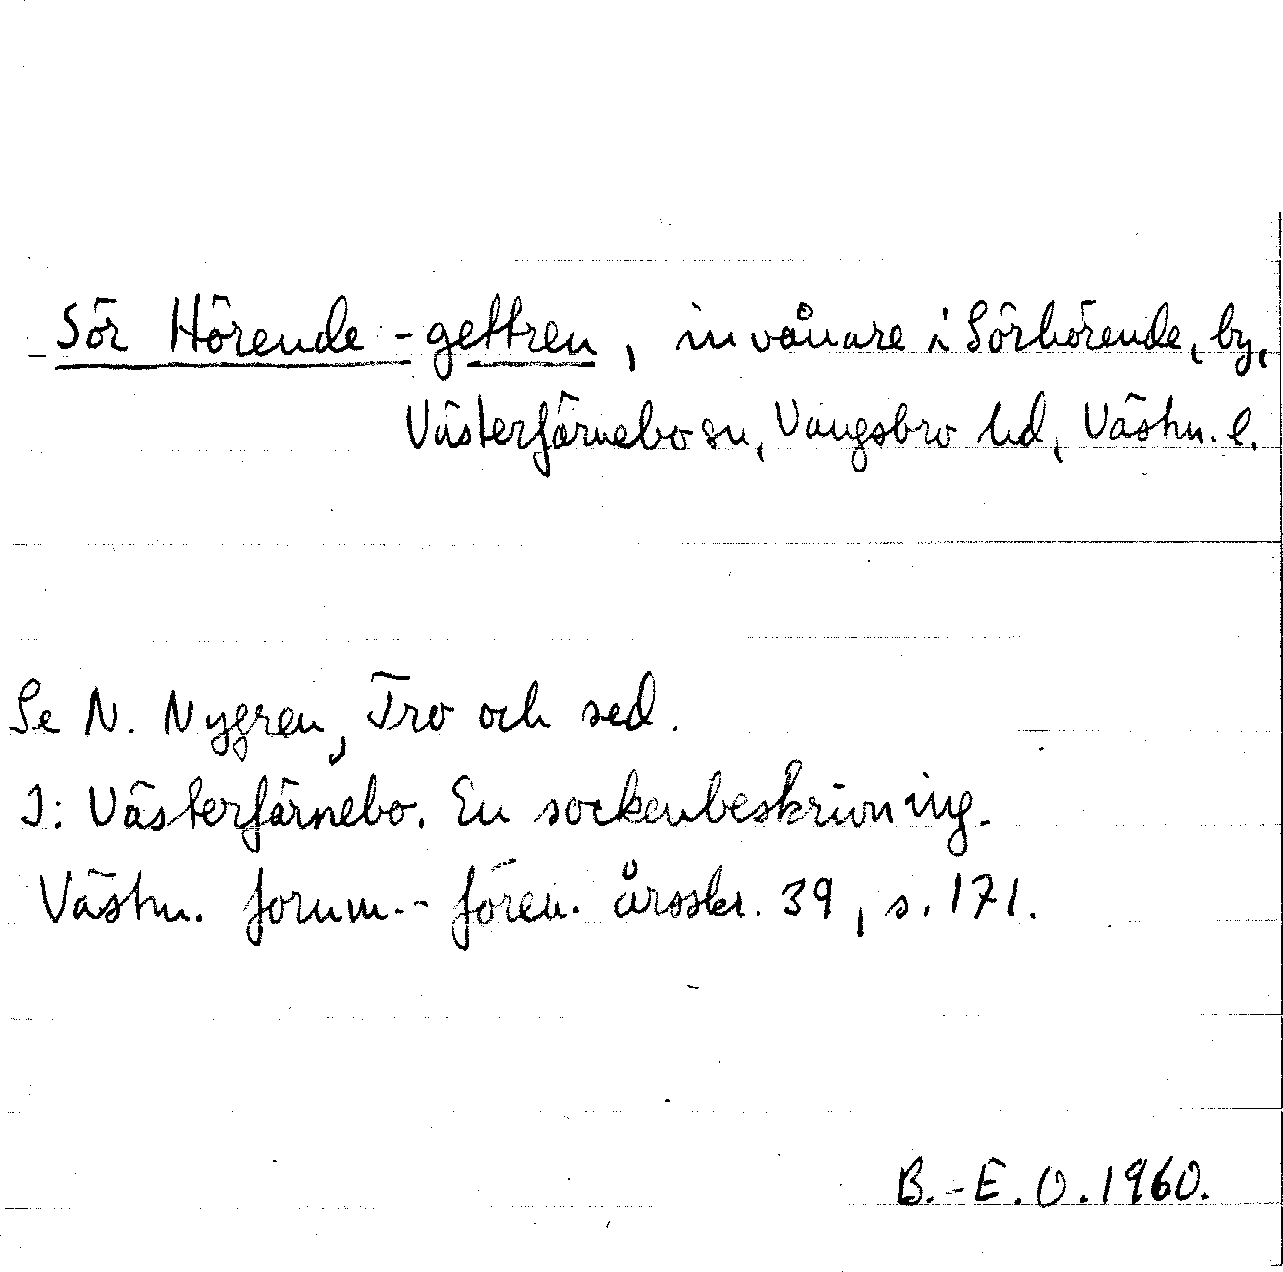 Sör Hörende-gettren, invånare i Sörhörende, by,
Västerfärnebo sn, Vangsbro hd, Västm. l.
Se N. Nygren, Tro och sed.
I: Västerfärnebo. En sockenbeskrivning.
Västm. fornm.-fören. årsskr. 39, s. 171.
B.-E. O. 1960.